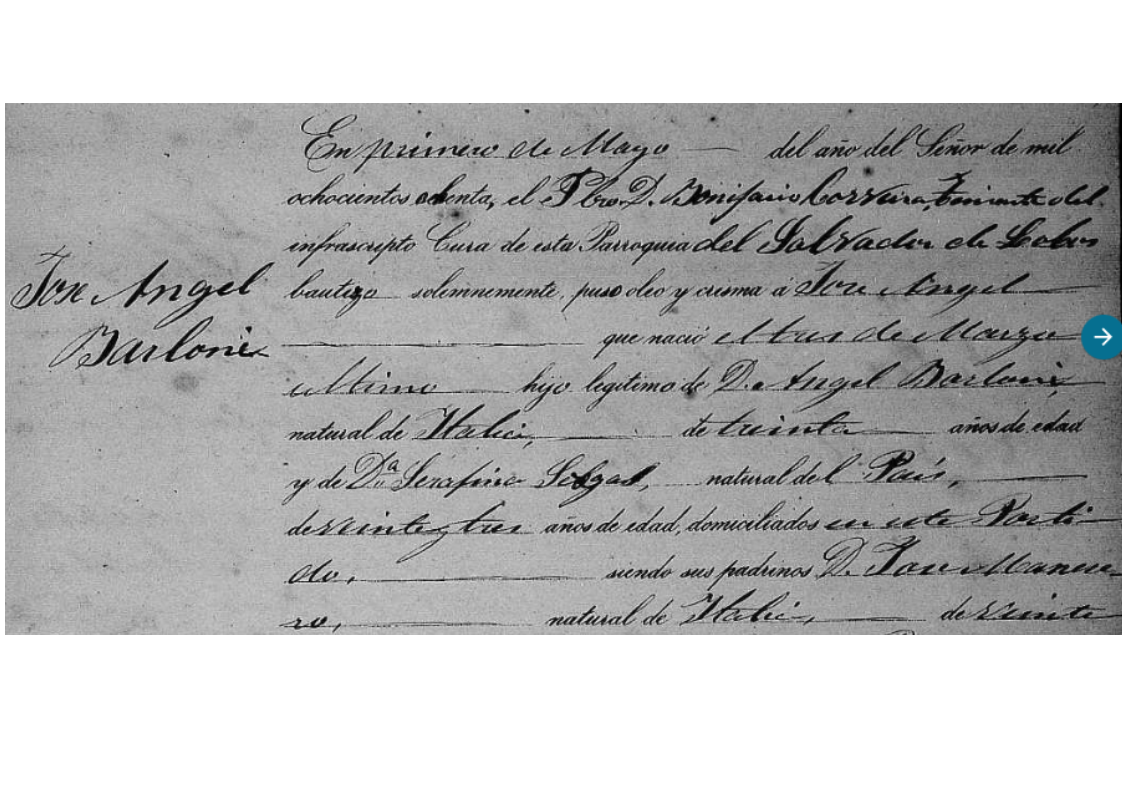 En primero de Mayo del año del Señor de mil
ochocientos ochenta, el Pbro. D. Bonifacio Correira, Teniente del
infrascripto Cura de esta Parroquia del Salvador de Lobos
Jose Angel
bautizo solemnemente, puso oleo y crisma á Jose Angel
Barloni
que nació el tres de Marzo
ultimo hijo legitimo de D. Angel Barloni,
natural de Italia, de treinta años de edad
y de Da. Serafina natural del Pais,
de veinte y tres años de edad, domiciliados en este Parti-
do, siendo sus padrinos D. Jose
ro, natural de Italia, de veinte